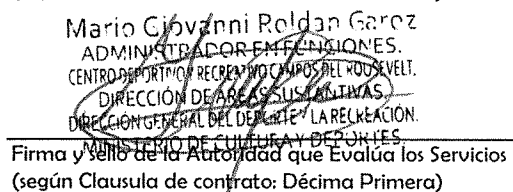 Mario Giovanni Roldan Garoz
ADMINISTRADOR EN FUNCIONES.
CENTRO DEPORTIVO Y RECREATIVO CAMPOS DEL ROOSEVELT.
DIRECCIÓN DE AREAS SUSTANTIVAS
DIRECCIÓN GENERAL DEL DEPORTE Y LA RECREACIÓN.
MINISTERIO DE CULTURA Y DEPORTES.
Firma y sello de la Autoridad que Evalúa los Servicios
(según Clausula de contrato: Décima Primera)